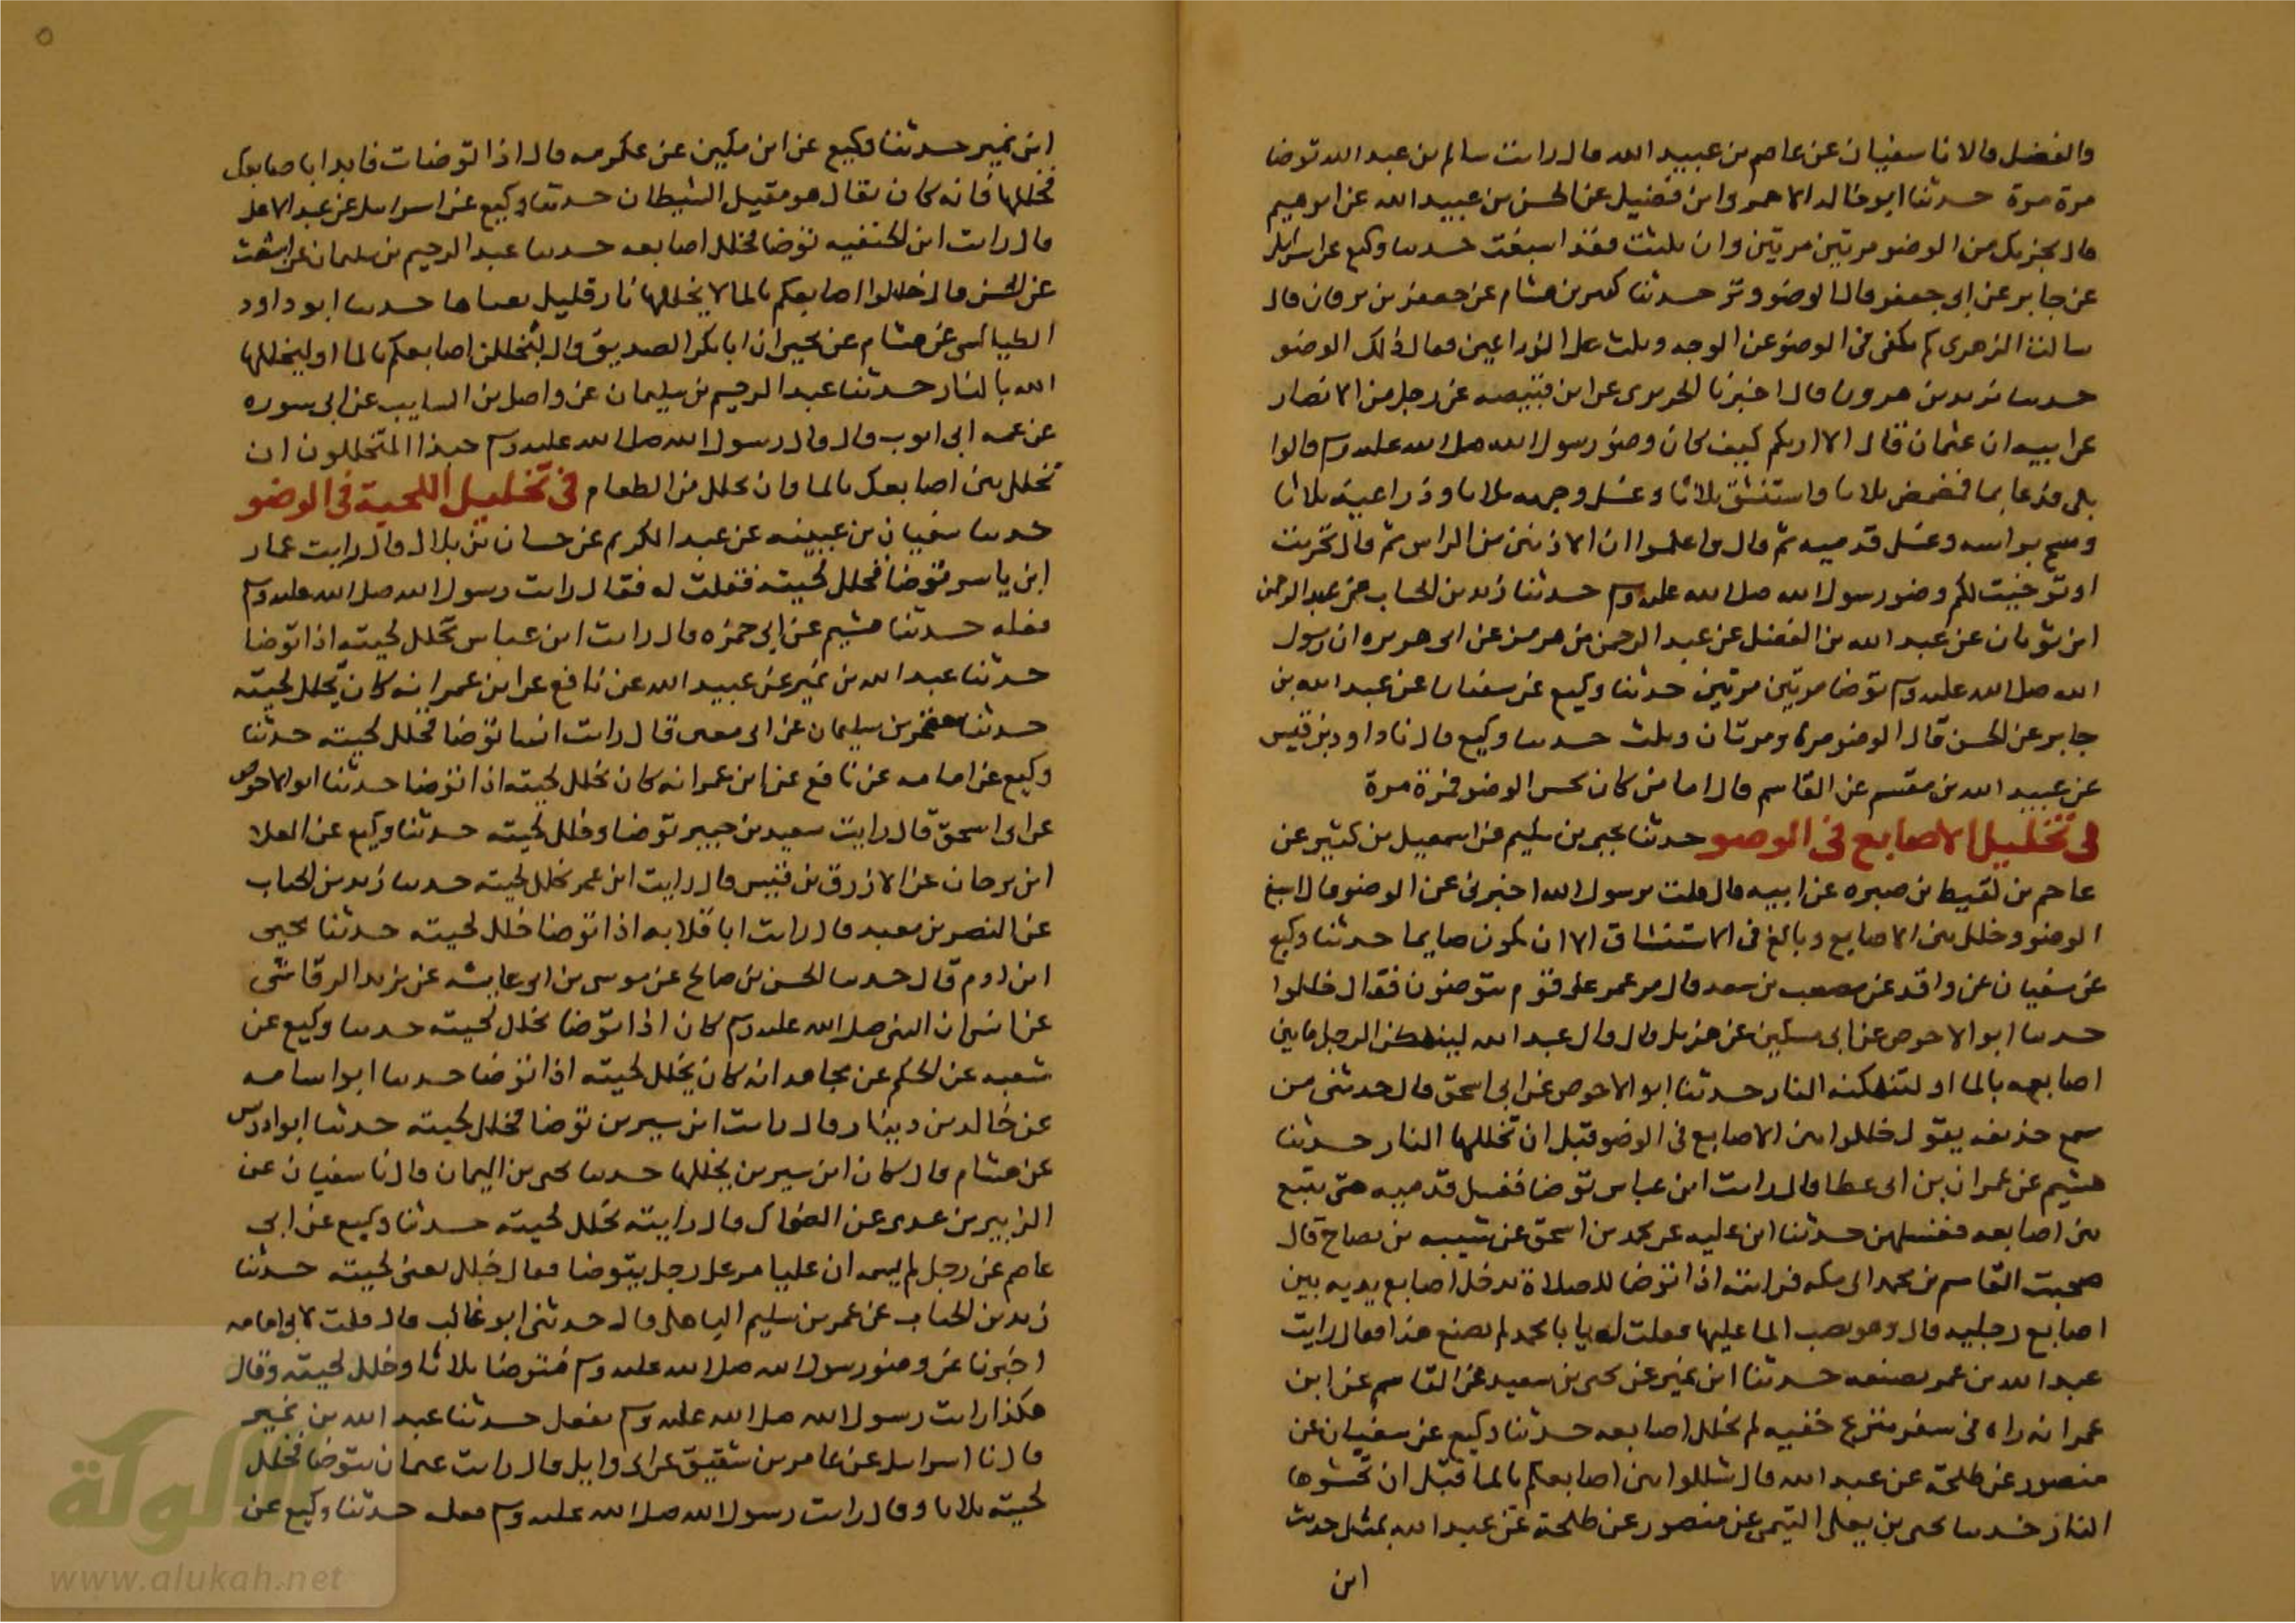 والفضل قالا نا سفيان عن عاصم بن عبيد الله قال رايت سالم بن عبد الله توضا
مرة مرة حدثنا ابو خالد الاحمر وابن فضيل عن الحسن بن عبيد الله عن ابرهيم
قال يجزيك من الوضو مرتين مرتين وان ثلثت فقد اسبغت حدثنا وكيع عن اسرائيل
عن جابر عن ابي جعفر قال الوضو وتر حدثنا كثير بن هشام عن جعفر بن برقان قال
سالت الزهرى كم يكفى من الوضو عن الوجه وثلث على الذراعين فقال ذلك الوضو
حدثنا يزيد بن هرون قال اخبرنا الجريرى عن ابن قبيصه عن رجل من الانصار
عن ابيه ان عثمان قال الا اريكم كيف كان وضو رسول الله صلى الله عليه وسلم قالوا
بلى فدعا بما فمضمض ثلاثا واستنشق ثلاثا وغسل وجهه ثلاثا وذراعيه ثلاثا
ومسح براسه وغسل قدميه ثم قال واعلموا ان الاذنين من الراس ثم قال تحريت
او توخيت لكم وضو رسول الله صلى الله عليه وسلم حدثنا زيد بن الحباب عن عبد الرحمن
ابن ثوبان عن عبد الله بن الفضل عن عبد الرحمن بن هرمز عن ابى هريره ان رسول
الله صلى الله عليه وسلم توضا مرتين مرتين حدثنا وكيع عن سفيان عن عبد الله بن
جابر عن الحسن قال الوضو مرة ومرتان وثلث حدثنا وكيع قال نا داود بن قيس
عن عبيد الله بن مقسم عن القاسم قال اما من كان يحسن الوضو فمرة مرة
فى تخليل الاصابع فى الوضو حدثنا يحيى بن سليم عن اسمعيل بن كثير عن
عاصم بن لقيط بن صبره عن ابيه قال قلت يرسول الله اخبرنى عن الوضو قال اسبغ
الوضو وخلل بين الاصابع وبالغ فى الاستنشاق الا ان تكون صايما حدثنا وكيع
عن سفيان عن واقد عن مصعب بن سعد قال مر عمر على قوم يتوضون فقال خللوا
حدثنا ابو الاحوص عن ابى مسكين عن هزيل قال قال عبد الله لينهكن الرجل مابين
اصابعه بالما او لتنهكنه النار حدثنا ابو الاحوص عن ابى اسحق قال حدثنى من
سمع حذيفه يقول خللوا بين الاصابع فى الوضو قبل ان تخللها النار حدثنا
هشيم عن عمران بن ابى عطا قال رايت ابن عباس توضا فغسل قدميه حتى تتبع
بين اصابعه فغسلهن حدثنا ابن عليه عن محمد بن اسحق عن شيبه بن نصاح قال
صحبت القاسم بن محمد الى مكه فرايته اذا توضا للصلاة يدخل اصابع يديه بين
اصابع رجليه قال وهو يصب الما عليها فقلت له يا با محمد لم تصنع هذا فقال رايت
عبد الله بن عمر يصنعه حدثنا ابن نمير عن يحيى بن سعيد عن القاسم عن ابن
عمر انه راه فى سفر ينزع خفيه ثم يخلل اصابعه حدثنا وكيع عن سفيان عن
منصور عن طلحة عن عبد الله قال خللوا بين اصابعكم بالما قبل ان تحشوها
النار حدثنا يحيى بن يعلى التيمى عن منصور عن طلحة عن عبد الله بمثل حديث
ابن
ابن نمير حدثنا وكيع عن ابن مكين عن عكرمه قال اذا توضات فابدا باصابعك
فخللها فانه كان يقال هو مقيل الشيطان حدثنا وكيع عن اسرايل عن عبد الاعلى
قال رايت ابن الحنفيه توضا فخلل اصابعه حدثنا عبد الرحيم بن سليمان عن اشعث
عن الحسن قال خللوا اصابعكم بالما لا يخللها نار قليل بقياها حدثنا ابو داود
الطيالسى عن هشام عن يحيى ان ابا بكر الصديق قال لتخللن اصابعكم بالما او ليخللها
الله بالنار حدثنا عبد الرحيم بن سليمان عن واصل بن السايب عن ابى سوره
عن عمه ابى ايوب قال قال رسول الله صلى الله عليه وسلم حبذا المتخللون ان
تخلل بين اصابعك بالما وان تخلل من الطعام فى تخليل اللحية فى الوضو
حدثنا سفيان بن عيينه عن عبد الكريم عن حسان بن بلال قال رايت عمار
ابن ياسر توضا فخلل لحيته فقلت له فقال رايت رسول الله صلى الله عليه وسلم
فعله حدثنا هشيم عن ابى حمزه قال رايت ابن عباس يخلل لحيته اذا توضا
حدثنا عبد الله بن نمير عن عبيد الله عن نافع عن ابن عمر انه كان يخلل لحيته
حدثنا معتمر بن سليمان عن ابى معن قال رايت انسا توضا فخلل لحيته حدثنا
وكيع عن اسامه عن نافع عن ابن عمر انه كان يخلل لحيته اذا توضا حدثنا ابو الاحوص
عن ابى اسحق قال رايت سعيد بن جبير توضا وخلل لحيته حدثنا وكيع عن العلا
ابن برجان عن الازرق بن قيس قال رايت ابن عمر يخلل لحيته حدثنا زيد بن الحباب
عن النضر بن معبد قال رايت ابا قلابه اذا توضا خلل لحيته حدثنا يحيى
ابن ادم قال حدثنا الحسن بن صالح عن موسى بن ابى عايشه عن يزيد الرقاشى
عن انس ان النبى صلى الله عليه وسلم كان اذا توضا يخلل لحيته حدثنا وكيع عن
شعبه عن الحكم عن مجاهد انه كان يخلل لحيته اذا توضا حدثنا ابو اسامه
عن خالد بن دينار قال رايت ابن سيرين توضا فخلل لحيته حدثنا ابو ادريس
عن هشام قال كان ابن سيرين يخللها حدثنا يحيى بن اليمان قال نا سفيان عن
الزبير بن عدى عن الضحاك قال رايته يخلل لحيته حدثنا وكيع عن ابى
عاصم عن رجل لم يسمه ان عليا مر على رجل يتوضا فقال خلل يعنى لحيته حدثنا
زيد بن الحباب عن عمر بن سليم الباهلى قال حدثنى ابو غالب قال قلت لابى امامه
اخبرنا عن وضو رسول الله صلى الله عليه وسلم فتوضا ثلاثا وخلل لحيته وقال
هكذا رايت رسول الله صلى الله عليه وسلم يفعل حدثنا عبد الله بن نمير
قال نا اسرايل عن عامر بن شقيق عن ابى وايل قال رايت عثمان يتوضا فخلل
لحيته ثلاثا وقال رايت رسول الله صلى الله عليه وسلم فعله حدثنا وكيع عن
الألوكة
www.alukah.net